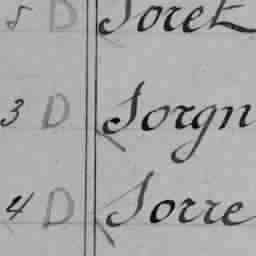 5 D Soret
3 D Sorgn
4 D Sorre